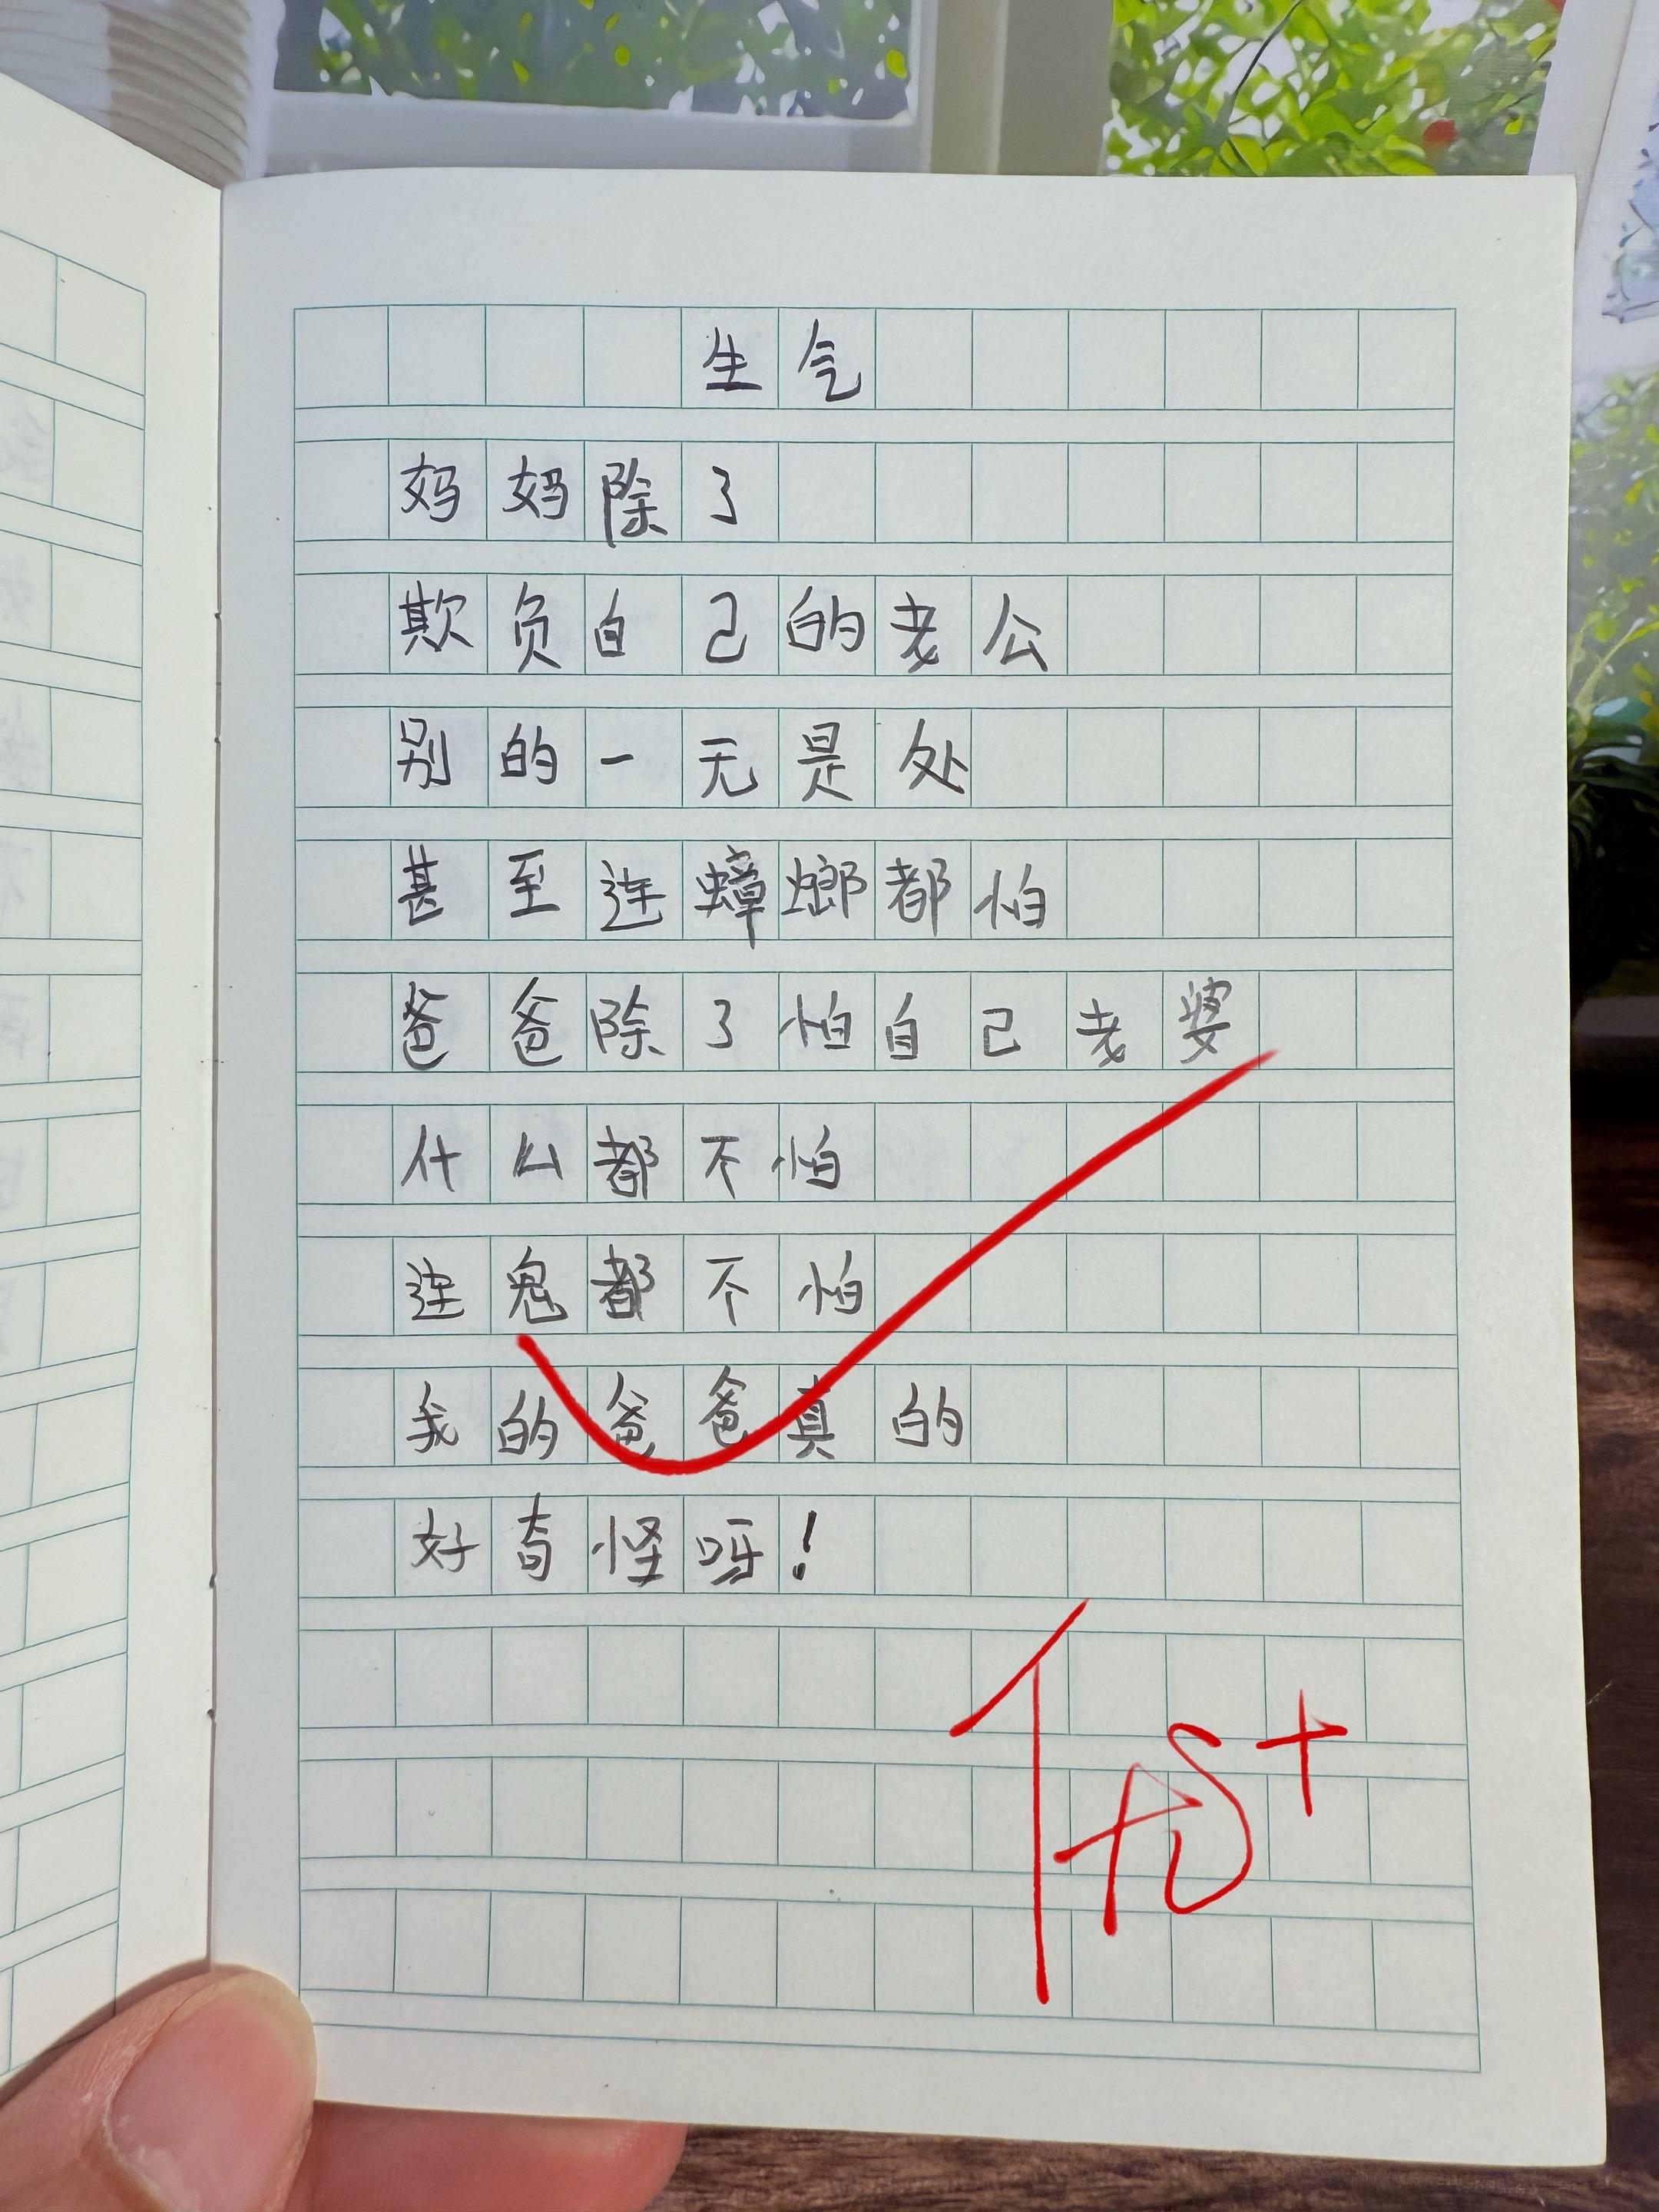 生气
妈妈除了
欺负自己的老公
别的一无是处
甚至连蟑螂都怕
爸爸除了怕自己老婆
什么都不怕
连鬼都不怕
我的爸爸真的
好奇怪呀!